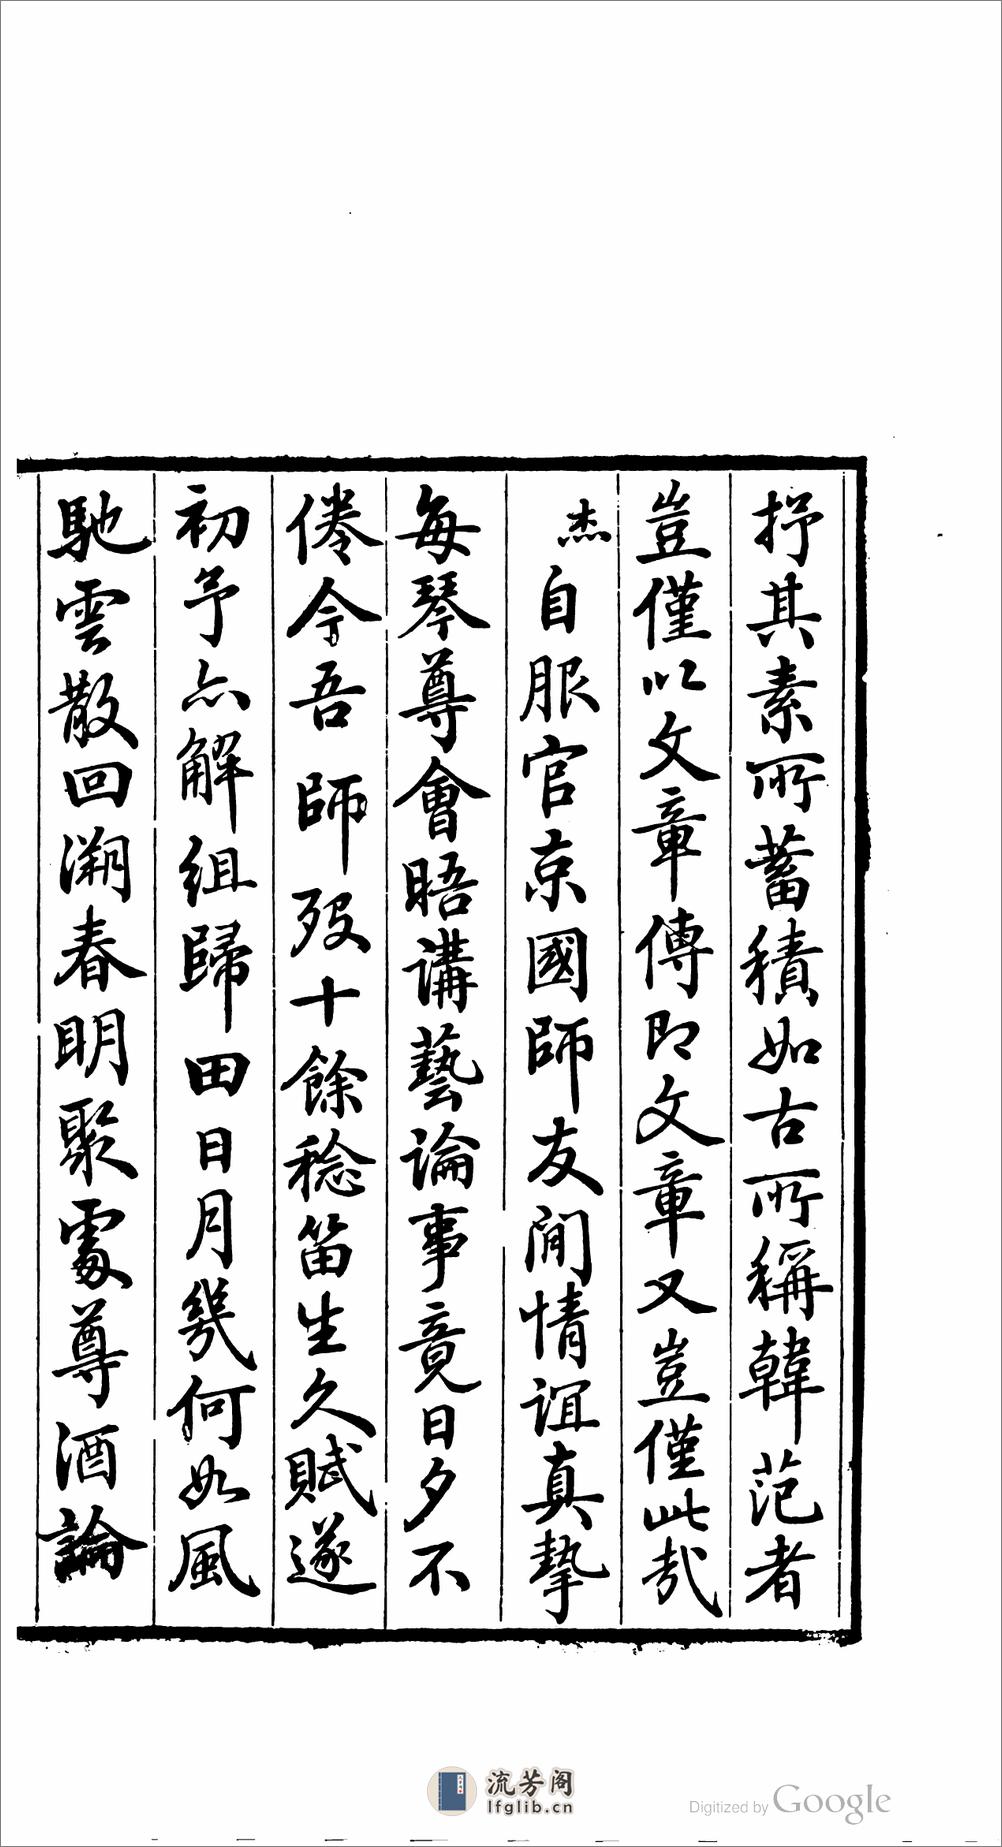 抒其素所蓄積如古所稱韓范者
豈僅以文章傳即文章又豈僅此哉
杰自服官京國師友間情誼真摯
每琴尊會晤講藝論事竟日夕不
倦今吾師歿十餘稔笛生久賦遂
初予亦解組歸田日月幾何如風
馳雲散回溯春明聚處尊酒論
流芳阁
lfglib.cn
Digitized by Google